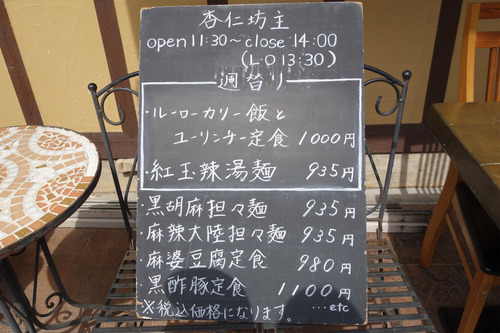 杏仁坊主
open 11:30～close 14:00
(L・O 13:30)
週替り
・ルーローカリー飯と
ユーリンチー定食 1000円
・紅玉辣湯麺 935円
黒胡麻担々麺 935円
麻辣大陸担々麺 935円
麻婆豆腐定食 980円
黒酢豚定食 1100円
※税込価格になります。 …etc